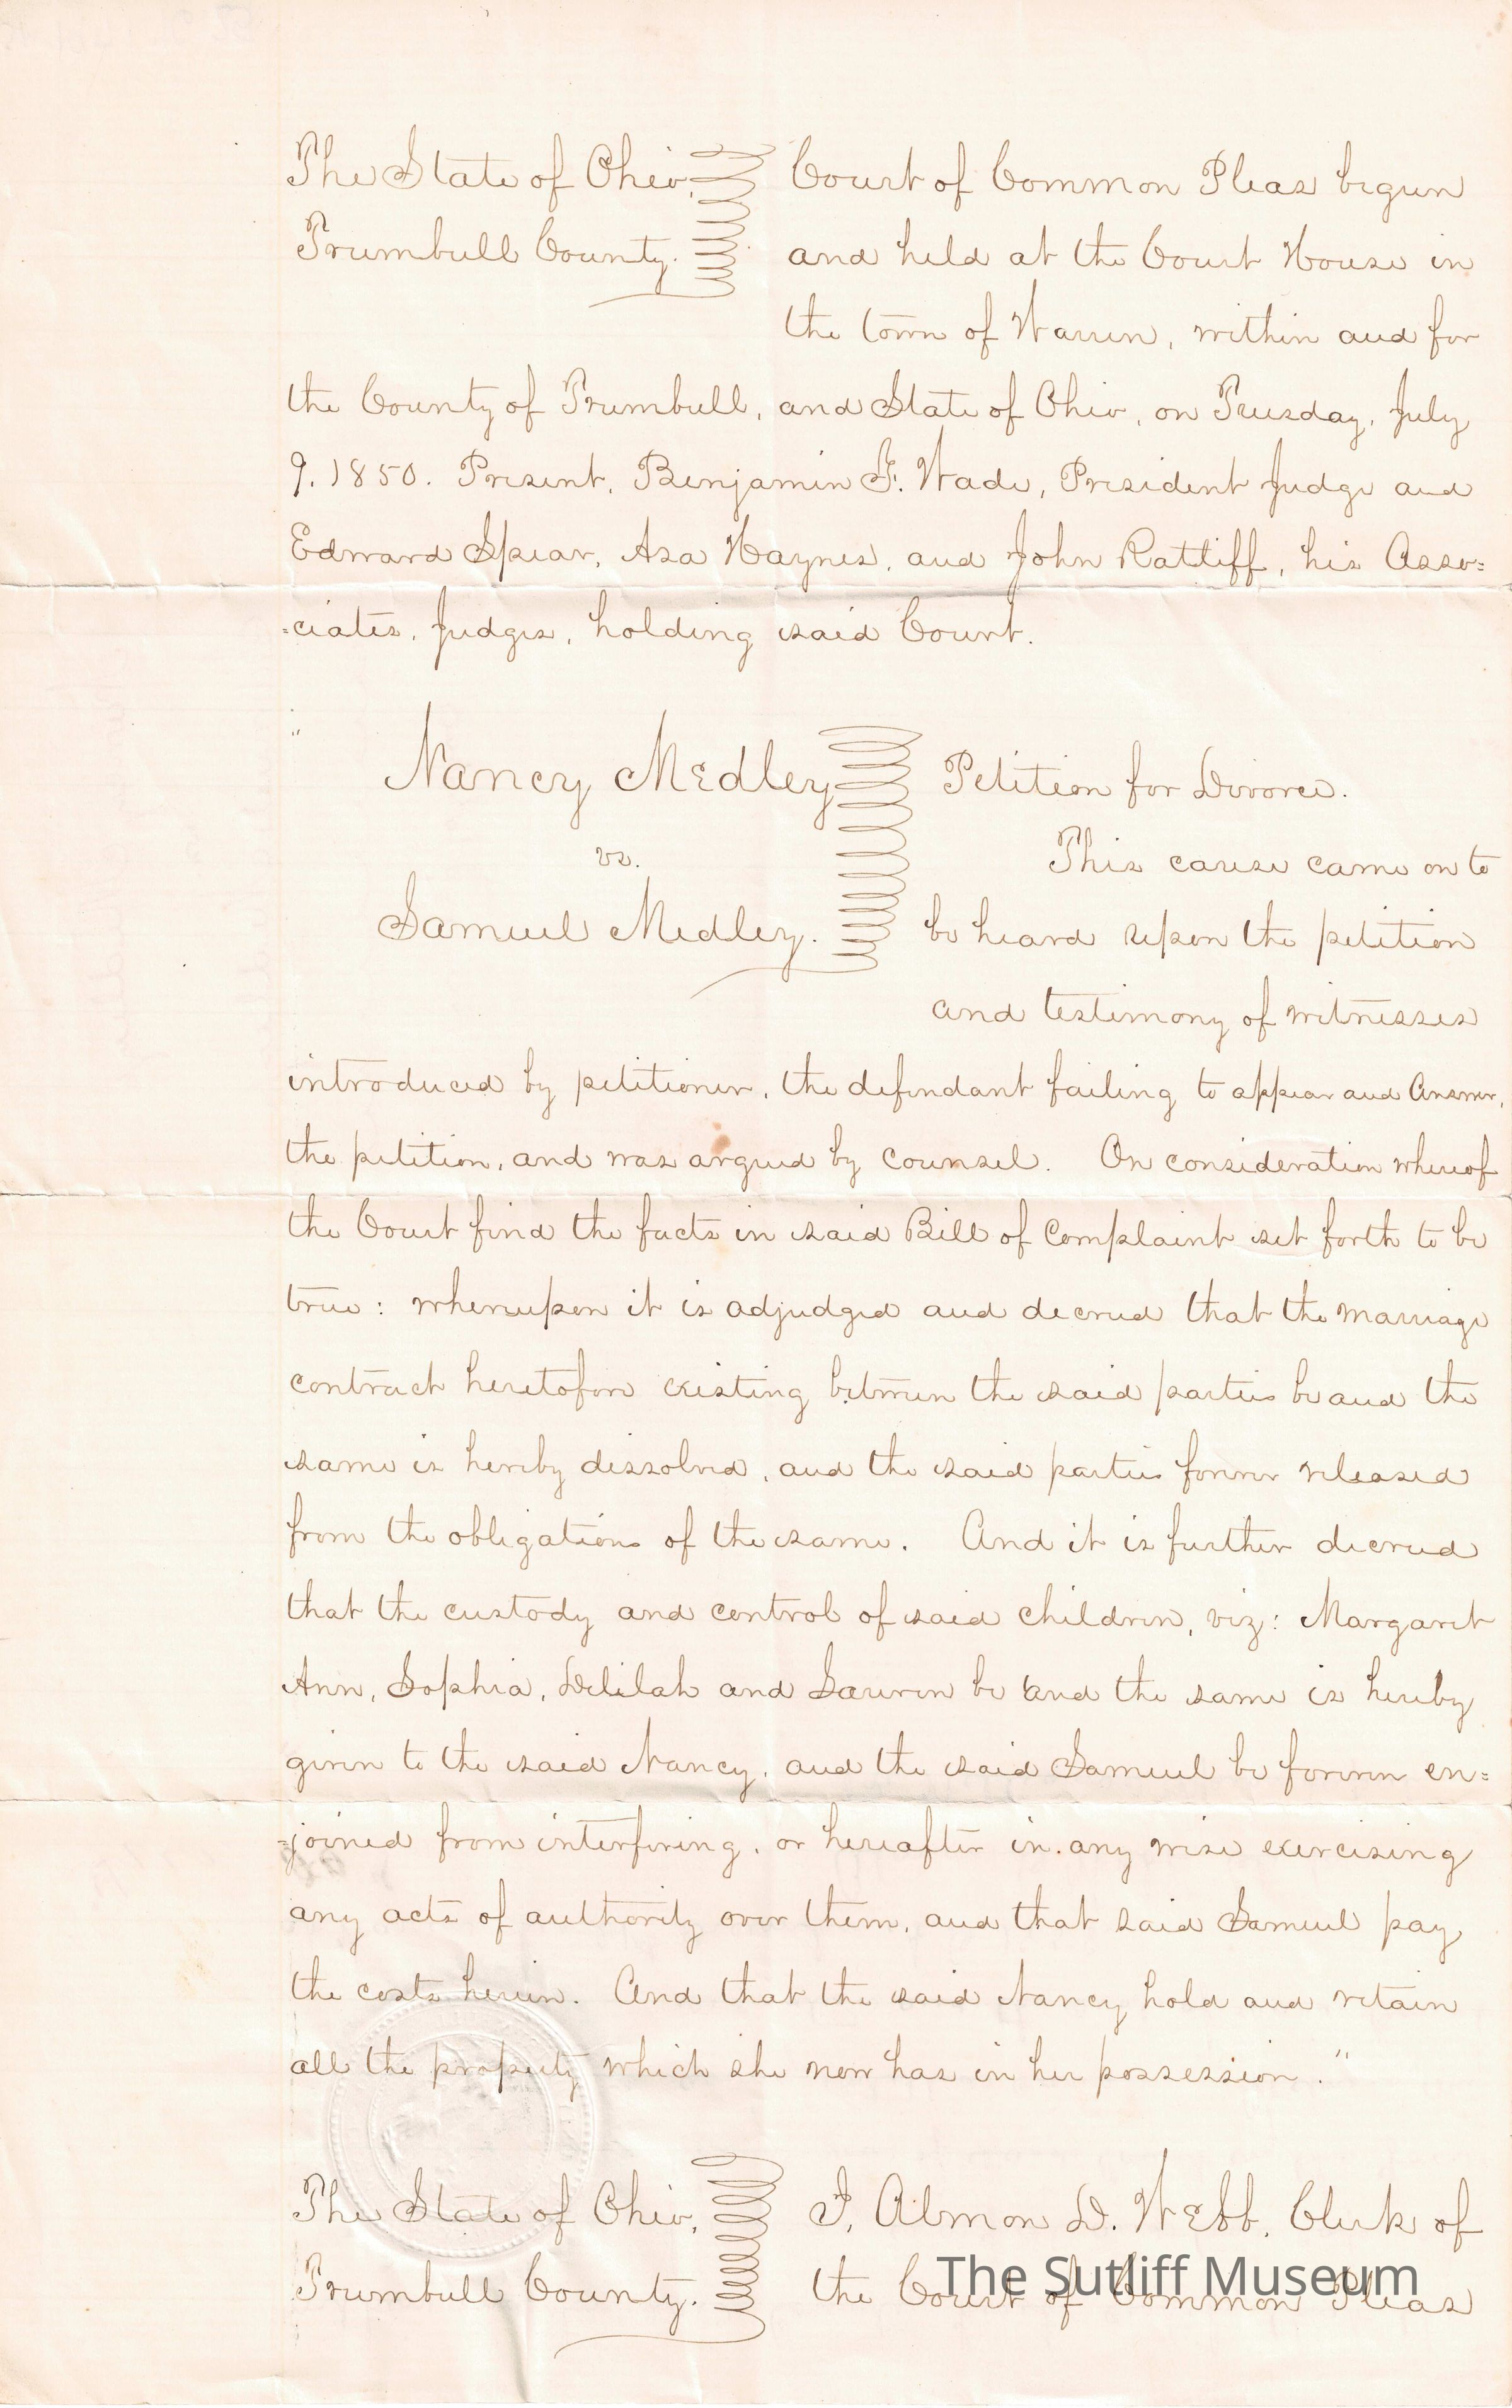 The State of Ohio, Court of Common Pleas begun
Trumbull County. and held at the Court House in
the town of Warren, within and for
the County of Trumbull, and State of Ohio, on Tuesday, July
9, 1850. Present, Benjamin F. Wade, President Judge and
Edward Spear, Asa Haynes, and John Ratliff, his Asso=
=ciates, Judges, holding said Court.
"
Nancy Medley Petition for Divorce.
This cause came on to
vs.
Samuel Medley. be heard upon the petition
and testimony of witnesses
introduced by petitioner, the defendant failing to appear and answer,
the petition, and was argued by counsel. On consideration whereof
the Court find the facts in said Bill of Complaint set forth to be
true: whereupon it is adjudged and decreed that the marriage
contract heretofore existing between the said parties be and the
same is hereby dissolved, and the said parties forever released
from the obligations of the same. And it is further decreed
that the custody and control of said children, viz: Margaret
Ann, Sophia, Delilah and Lauren be and the same is hereby
given to the said Nancy, and the said Samuel be forever en=
=joined from interfering, or hereafter in any wise exercising
any acts of authority over them, and that said Samuel pay
the costs herein. And that the said Nancy hold and retain
all the property which she now has in her possession."
The State of Ohio, I, Almon D. Webb, Clerk of
Trumbull County. the Court of Common Pleas
The Sutliff Museum